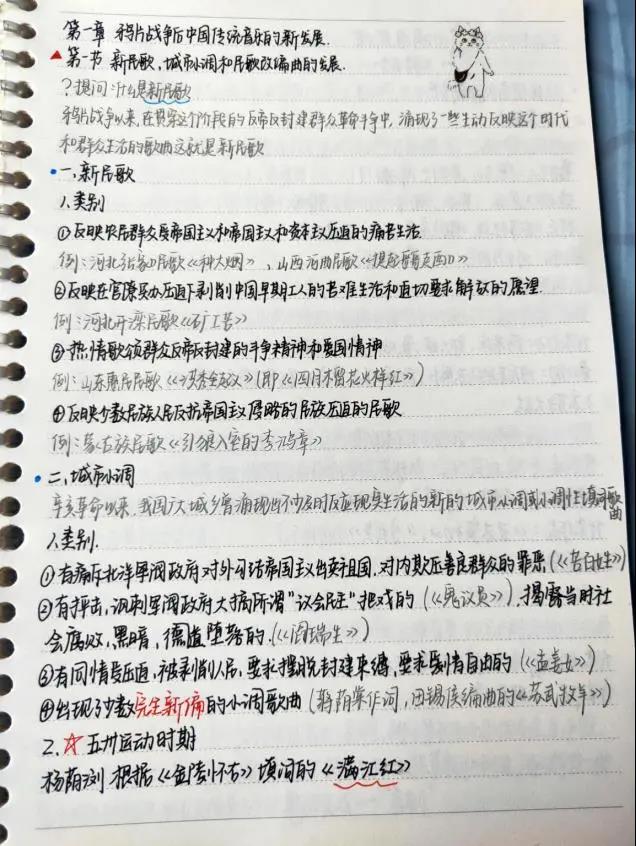 第一章 鸦片战争后中国传统音乐的新发展.
▲第一节 新民歌、城市小调和民歌改编曲的发展.
?提问:什么是新民歌
鸦片战争以来,在贯穿这个阶段的反帝反封建群众革命斗争中,涌现了一些生动反映这个时代
和群众生活的歌曲这就是新民歌
一、新民歌
1.类别
①反映农民群众受帝国主义和帝国主义和资本主义压迫的痛苦生活
例:河北张家口民歌《种大烟》、山西河曲民歌《提起哥哥走西口》
②反映在官僚买办压迫下剥削中国早期工人的苦难生活和迫切要求解放的愿望
例:河北开滦民歌《矿工苦》
③热情歌颂群众反帝反封建的斗争精神和爱国情神
例:山东惠民民歌《洪秀全起义》(即《四月榴花火样红》)
④反映少数民族人民反抗帝国主义侵略的民族压迫的民歌
例:蒙古族民歌《引狼入室的李鸿章》
二、城市小调
辛亥革命以来,我国广大城乡曾涌现出不少及时反应现实生活的新的城市小调或小调性填词歌曲
1.类别.
①有痛斥北洋军阀政府对外勾结帝国主义出卖祖国,对内欺压善良群众的罪恶(《苦百姓》)
②有抨击,讽刺军阀政府大搞所谓"议会民主"把戏的(《鬼议员》),揭露当时社
会腐败,黑暗,德道堕落的.(《阎瑞生》)
③有同情受压迫,被剥削人民,要求摆脱封建束缚,要求爱情自由的(《孟姜女》)
④出现了少数完全新编的小调歌曲(蒋荫棠作词,田锡侯编曲的《苏武牧羊》)
2.☆五卅运动时期
杨荫浏 根据《金陵怀古》填词的《满江红》